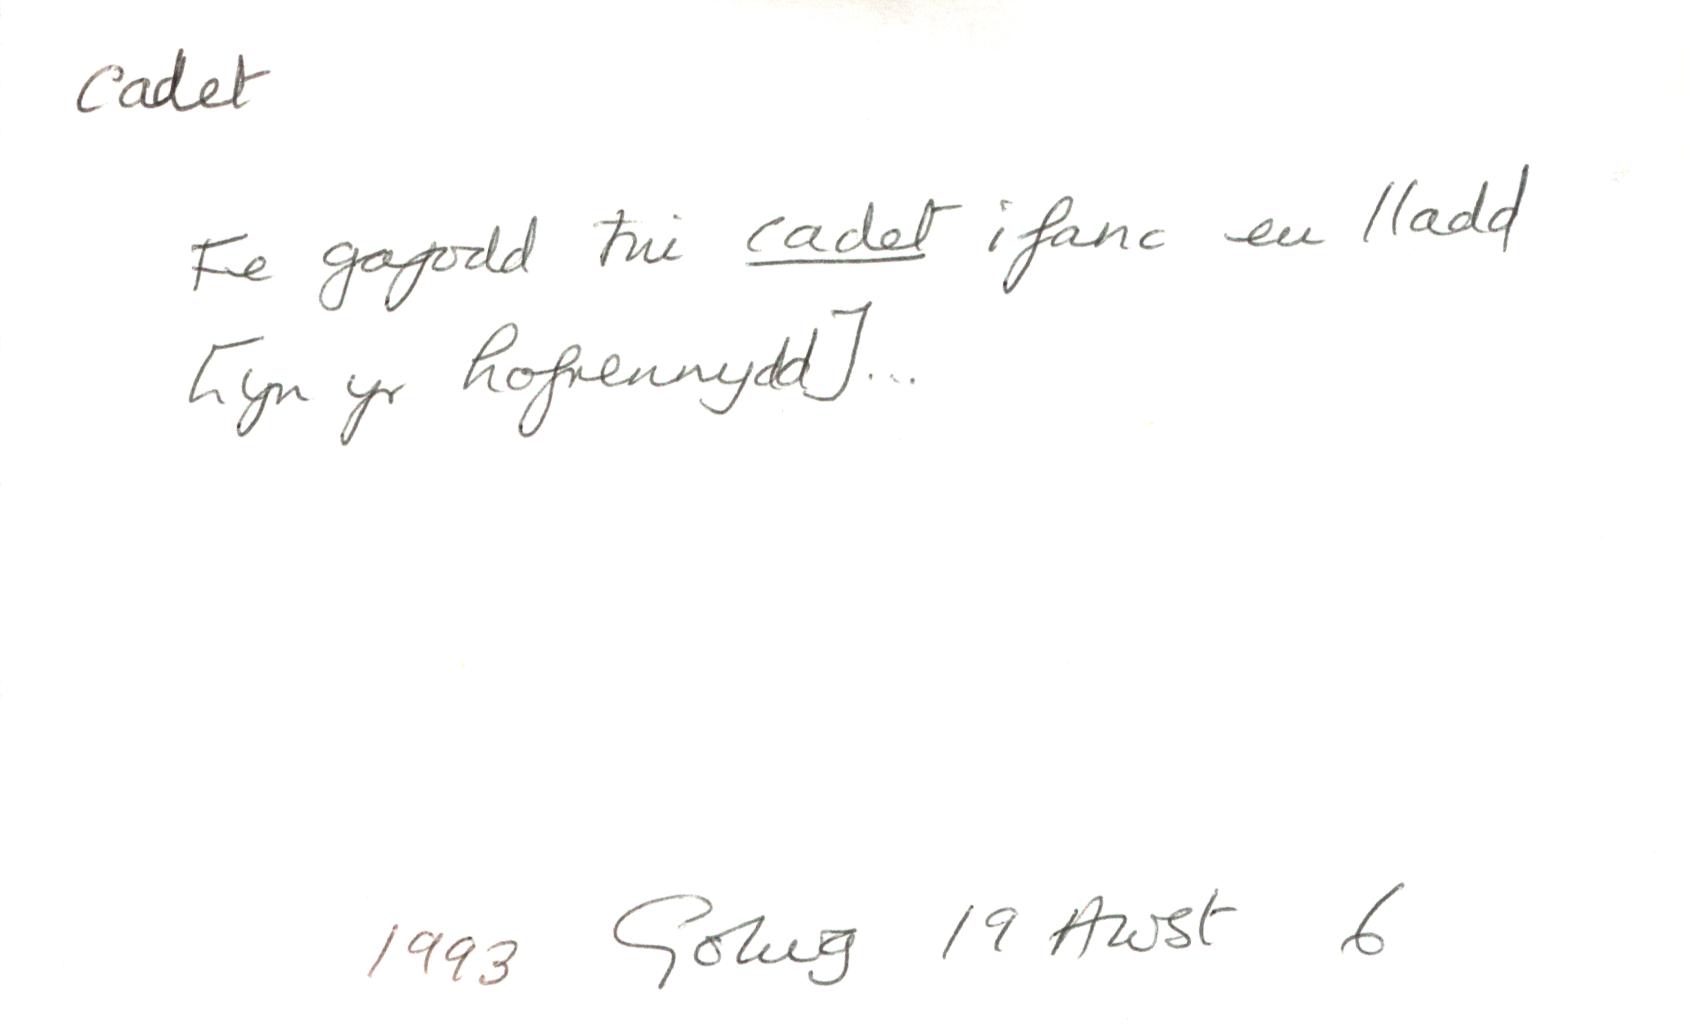 cadet
Fe gafodd tri cadet ifanc eu lladd
[yn yr hofrennydd]...
1993 Golwg 19 Awst 6